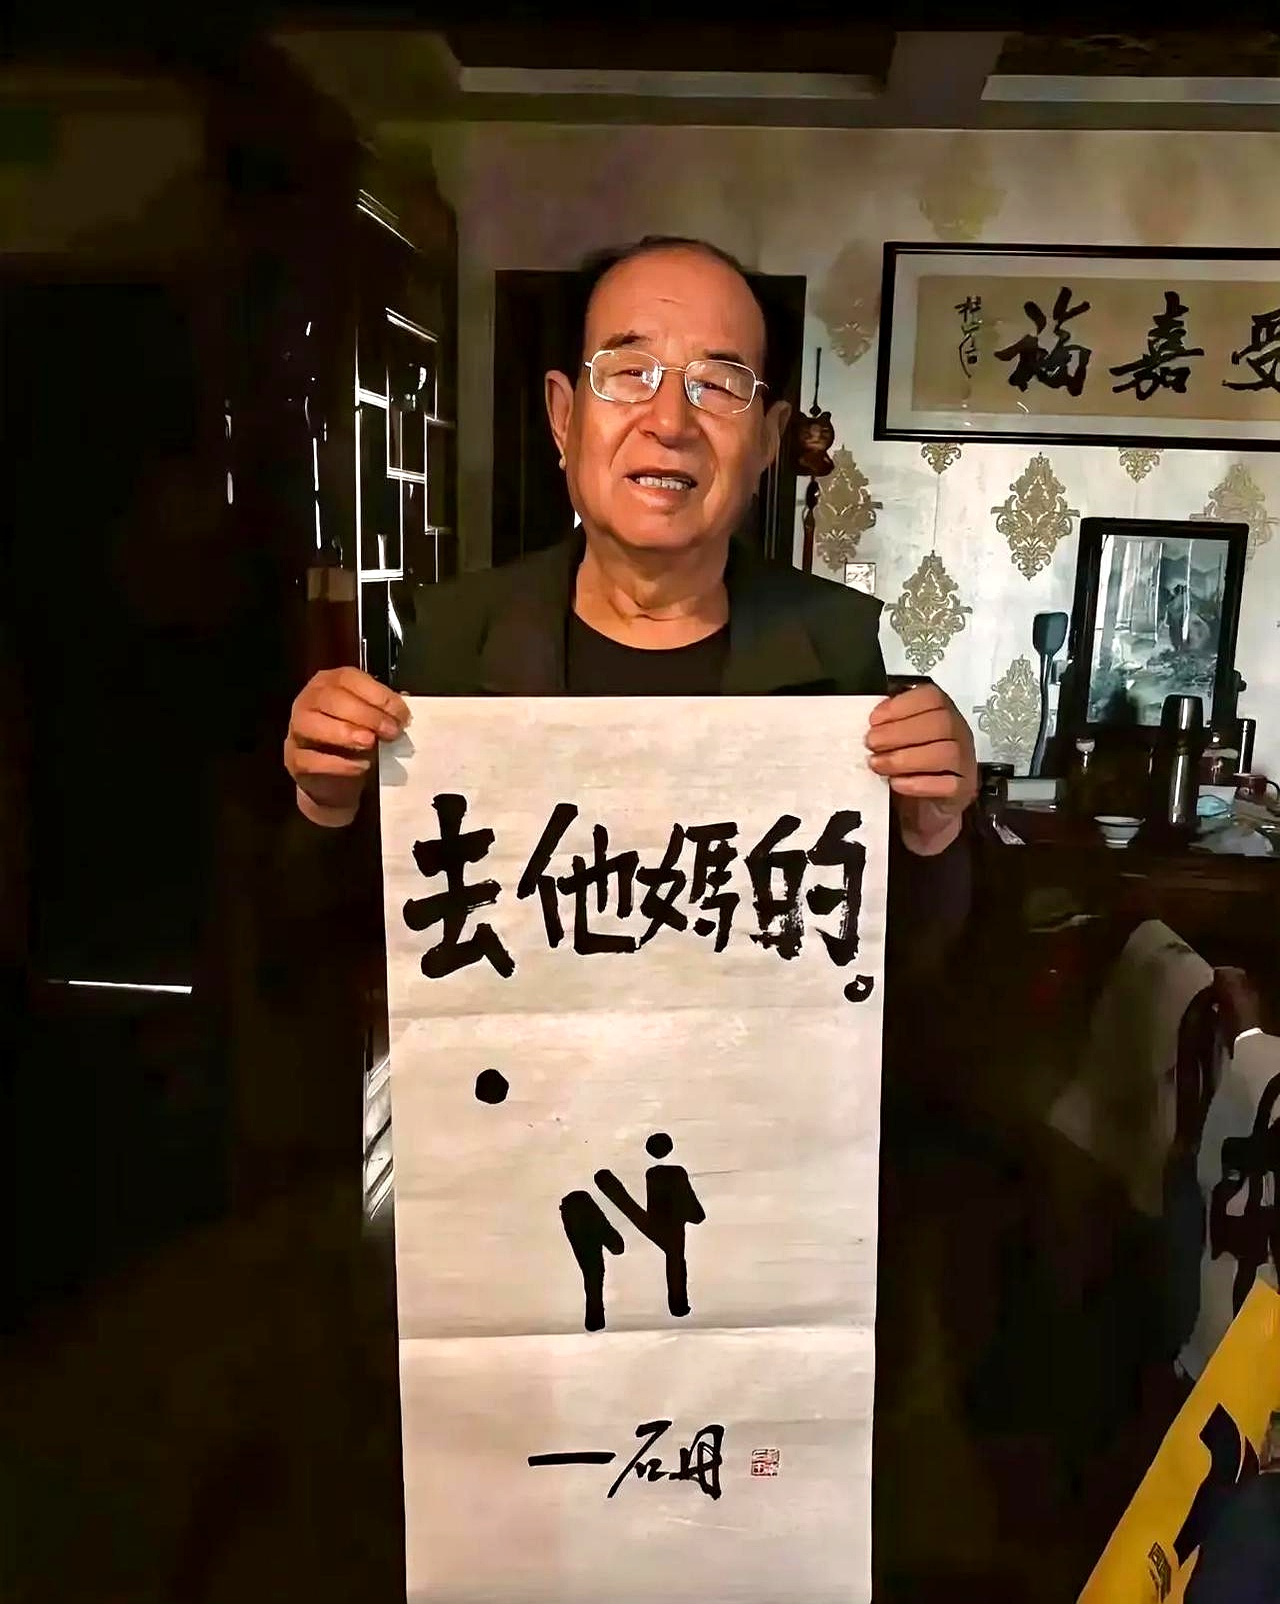 去他媽的。
一石丹
受嘉福